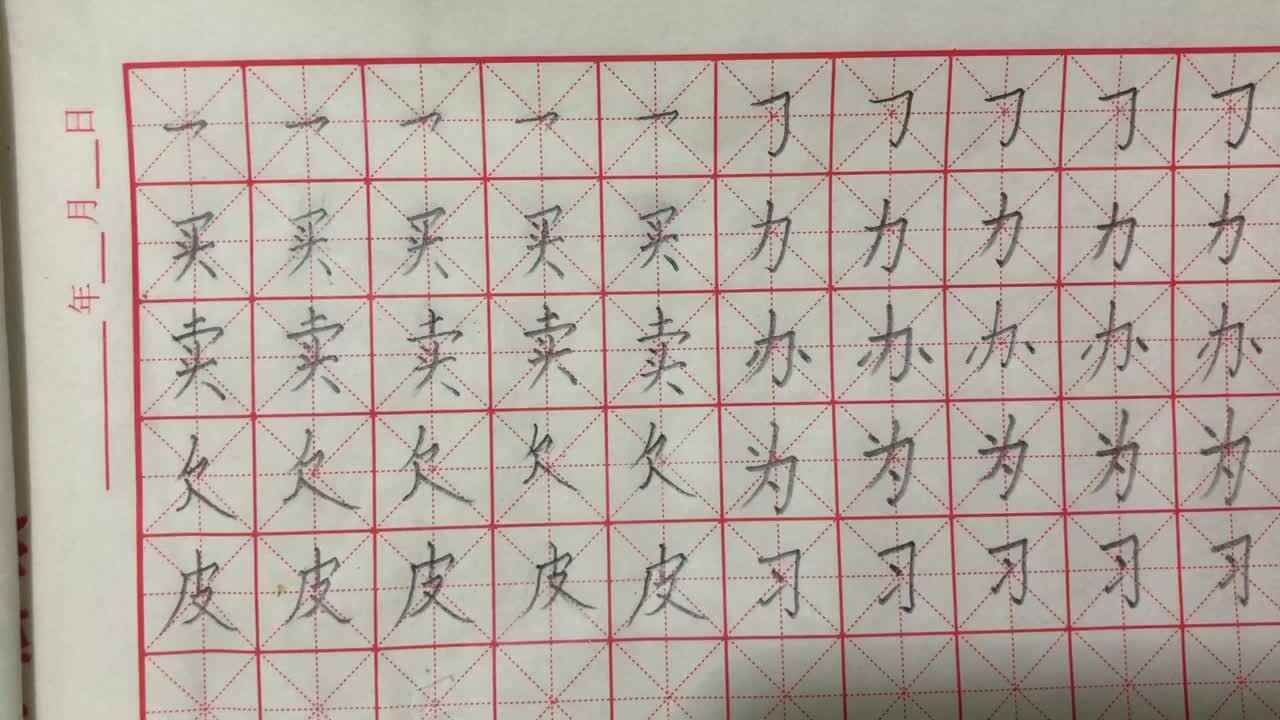 年 月 日
乛 乛 乛 乛 乛 𠃌 𠃌 𠃌 𠃌 𠃌
买 买 买 买 买 力 力 力 力 力
卖 卖 卖 卖 卖 办 办 办 办 办
欠 欠 欠 欠 欠 为 为 为 为 为
皮 皮 皮 皮 皮 习 习 习 习 习